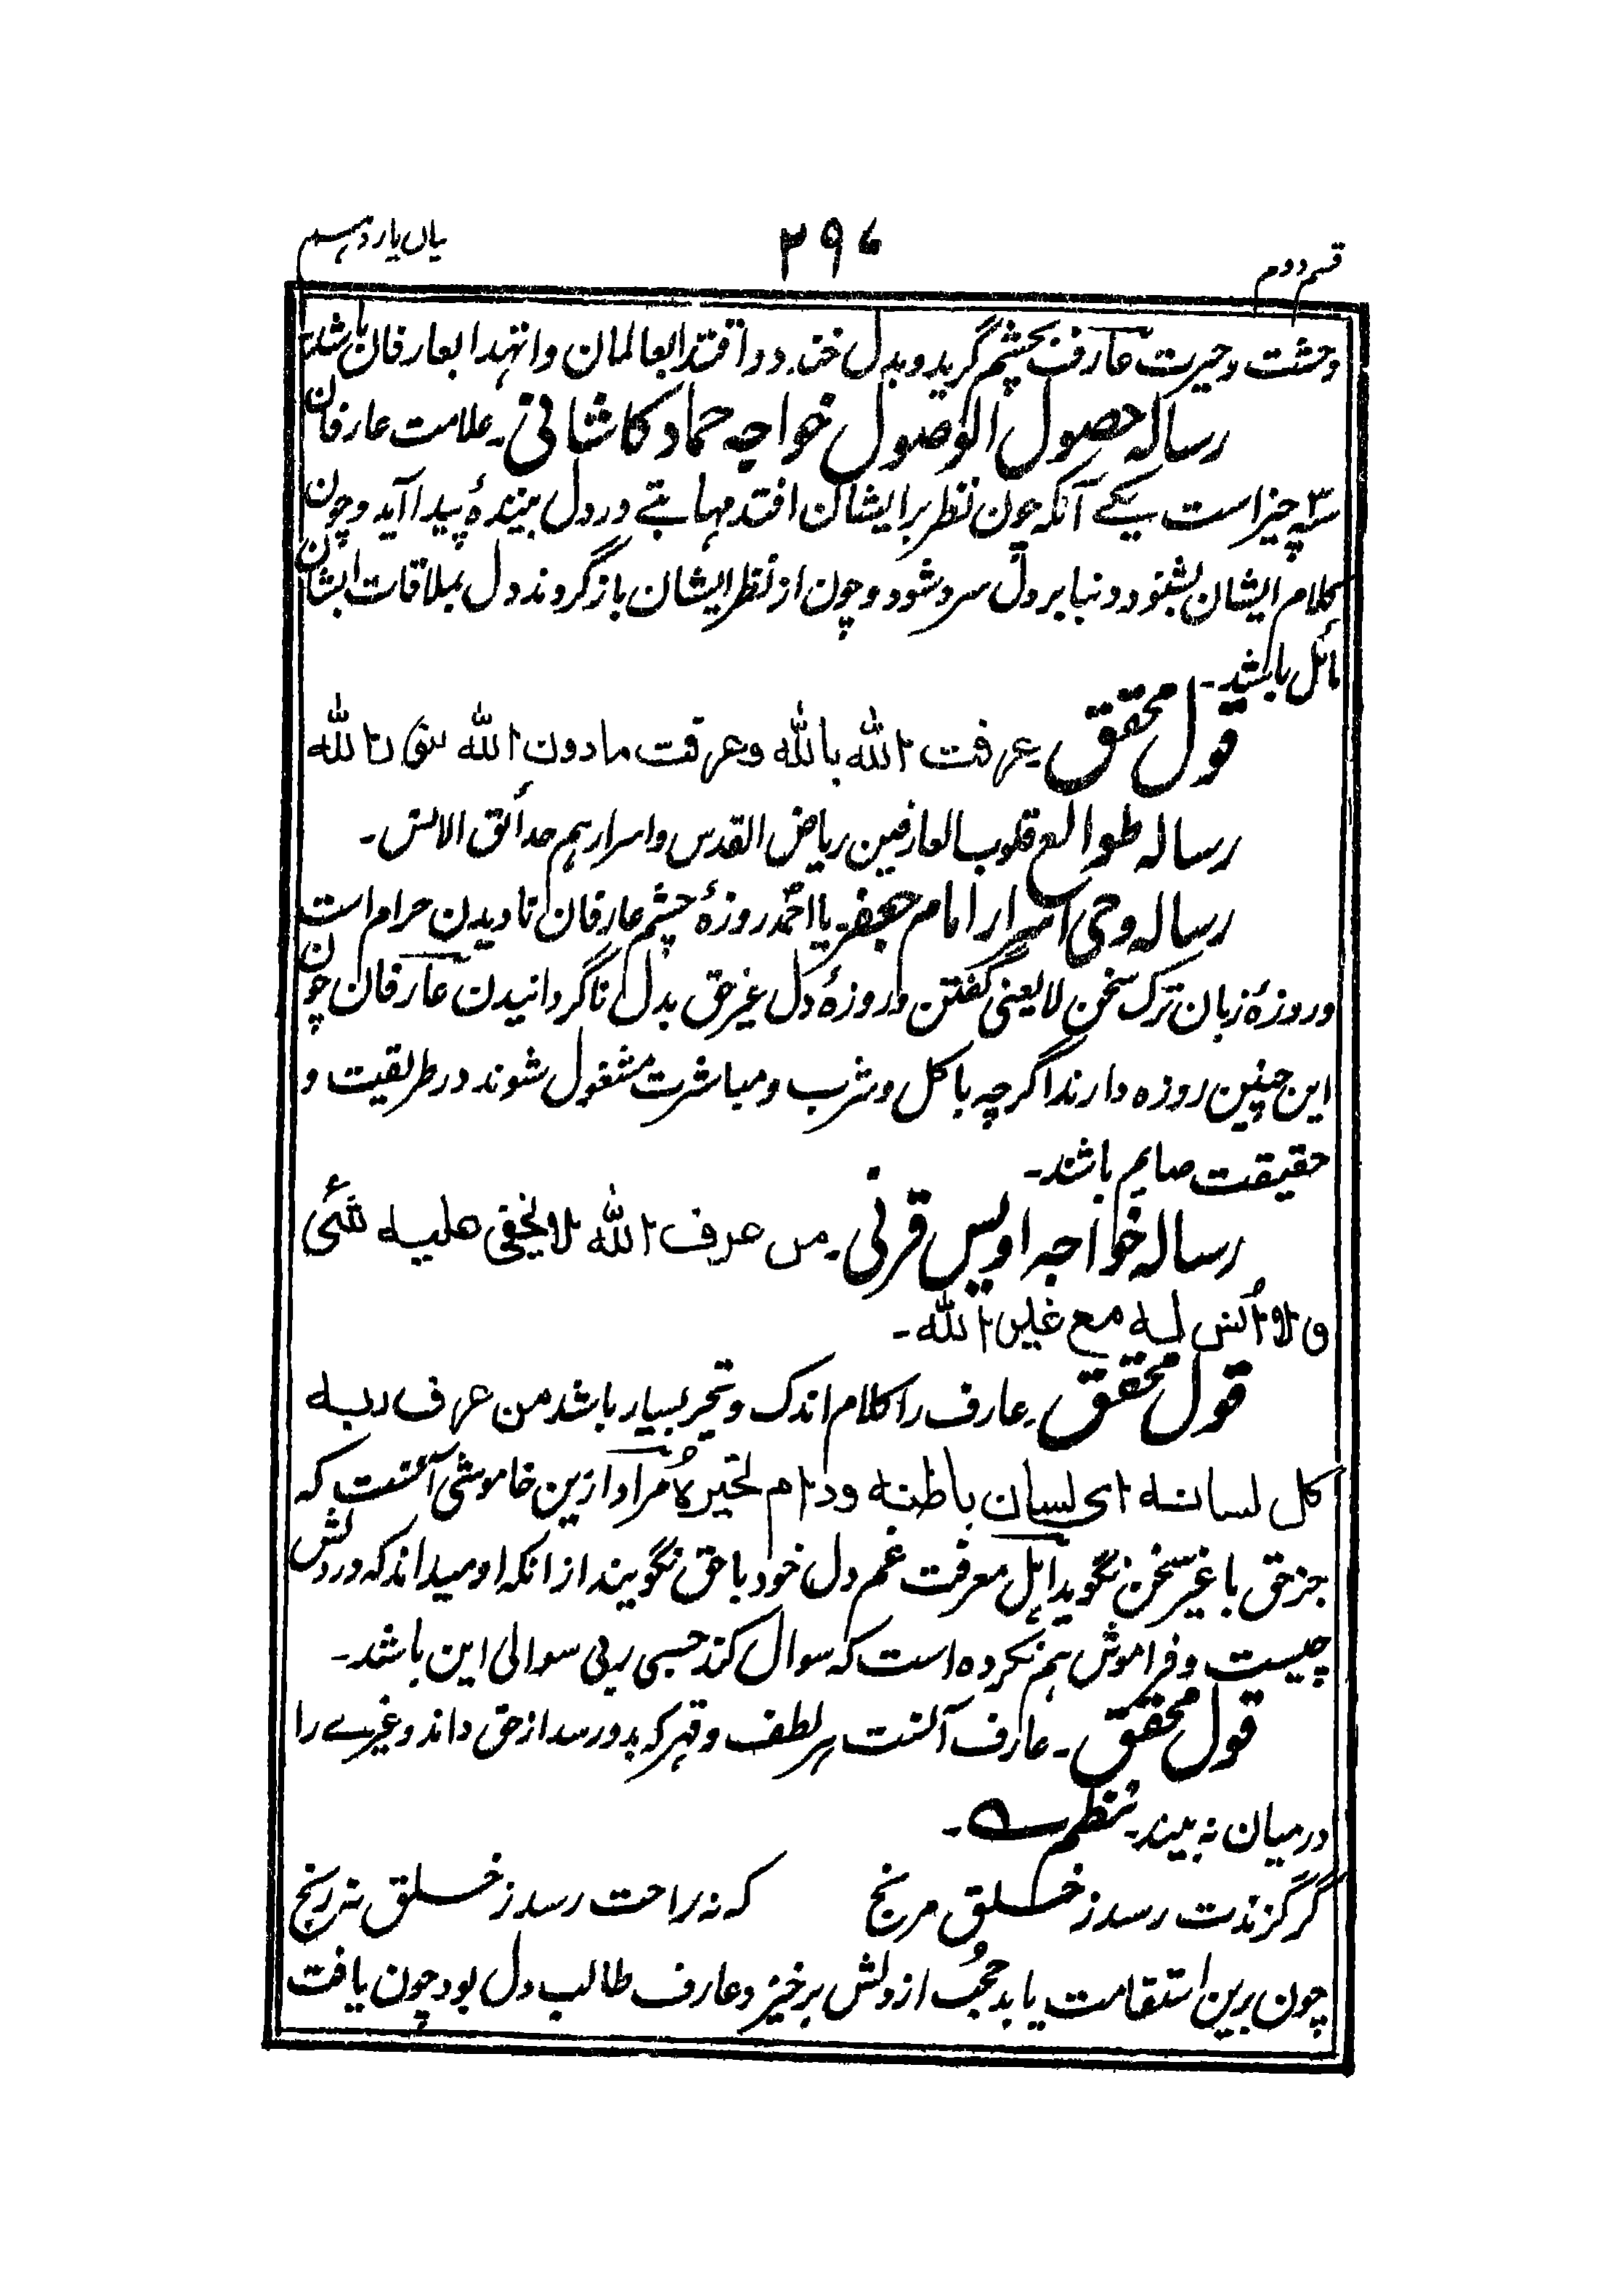 قسم دوم
۲۹۷
بیان یازدهم
وحشت وحیرت عارف بچشم گرید و بدل خندد و اقتدا بعالمان و اهتدا بعارفان باشد
رساله حصول الوصول خواجه حماد کاشانی۔ علامت عارفان
سه چیز است یکے آنکه چون نظر بر ایشان افتد مهابتے در دل بینندهٔ پیدا آید و چون
کلام ایشان بشنود دنیا بر دل سرد شود و چون از نظر ایشان باز گروند دل بملاقات ایشان
مائل باشد۔
قول محقق۔ عرفت الله بالله وعرفت مادون الله بنور الله
رساله طوالع قلوب العارفین ریاض القدس و اسرارهم حدائق الانس۔
رساله وحی اسرار امام جعفر۔ یا احمد روزهٔ چشم عارفان نادیدن حرام است
و روزهٔ زبان ترک سخن لایعنی گفتن و روزهٔ دل غیر حق بدل ناگردانیدن عارفان چون
این چنین روزه دارند اگرچه باکل و شرب و مباشرت مشغول شوند در طریقت و
حقیقت صایم باشند۔
رساله خواجه اویس قرنی۔ من عرف الله لا یخفی علیه شئ
ولا اُنس له مع غیر الله۔
قول محقق۔ عارف را کلام اندک و تحیر بسیار باشد من عرف ربه
کل لسانه ای لسان باطنه ودام تحیره مراد ازین خاموشی آنست که
جز حق با غیر سخن نگوید اهل معرفت غم دل خود با حق نگویند از انکه او میداند که در دلش
چیست و فراموش هم نکرده است که سوال کند حسبی ربی سوالی این باشد۔
قول محقق۔ عارف آنست هر لطف و قهر که بدو رسد از حق داند و غیرے را
درمیان نه بیند۔ نظم۔
گر گزندت رسد ز خلق مرنج که نه راحت رسد ز خلق نه رنج
چون برین استقامت یابد حجب از دلش برخیزد عارف طالب دل بود چون یافت